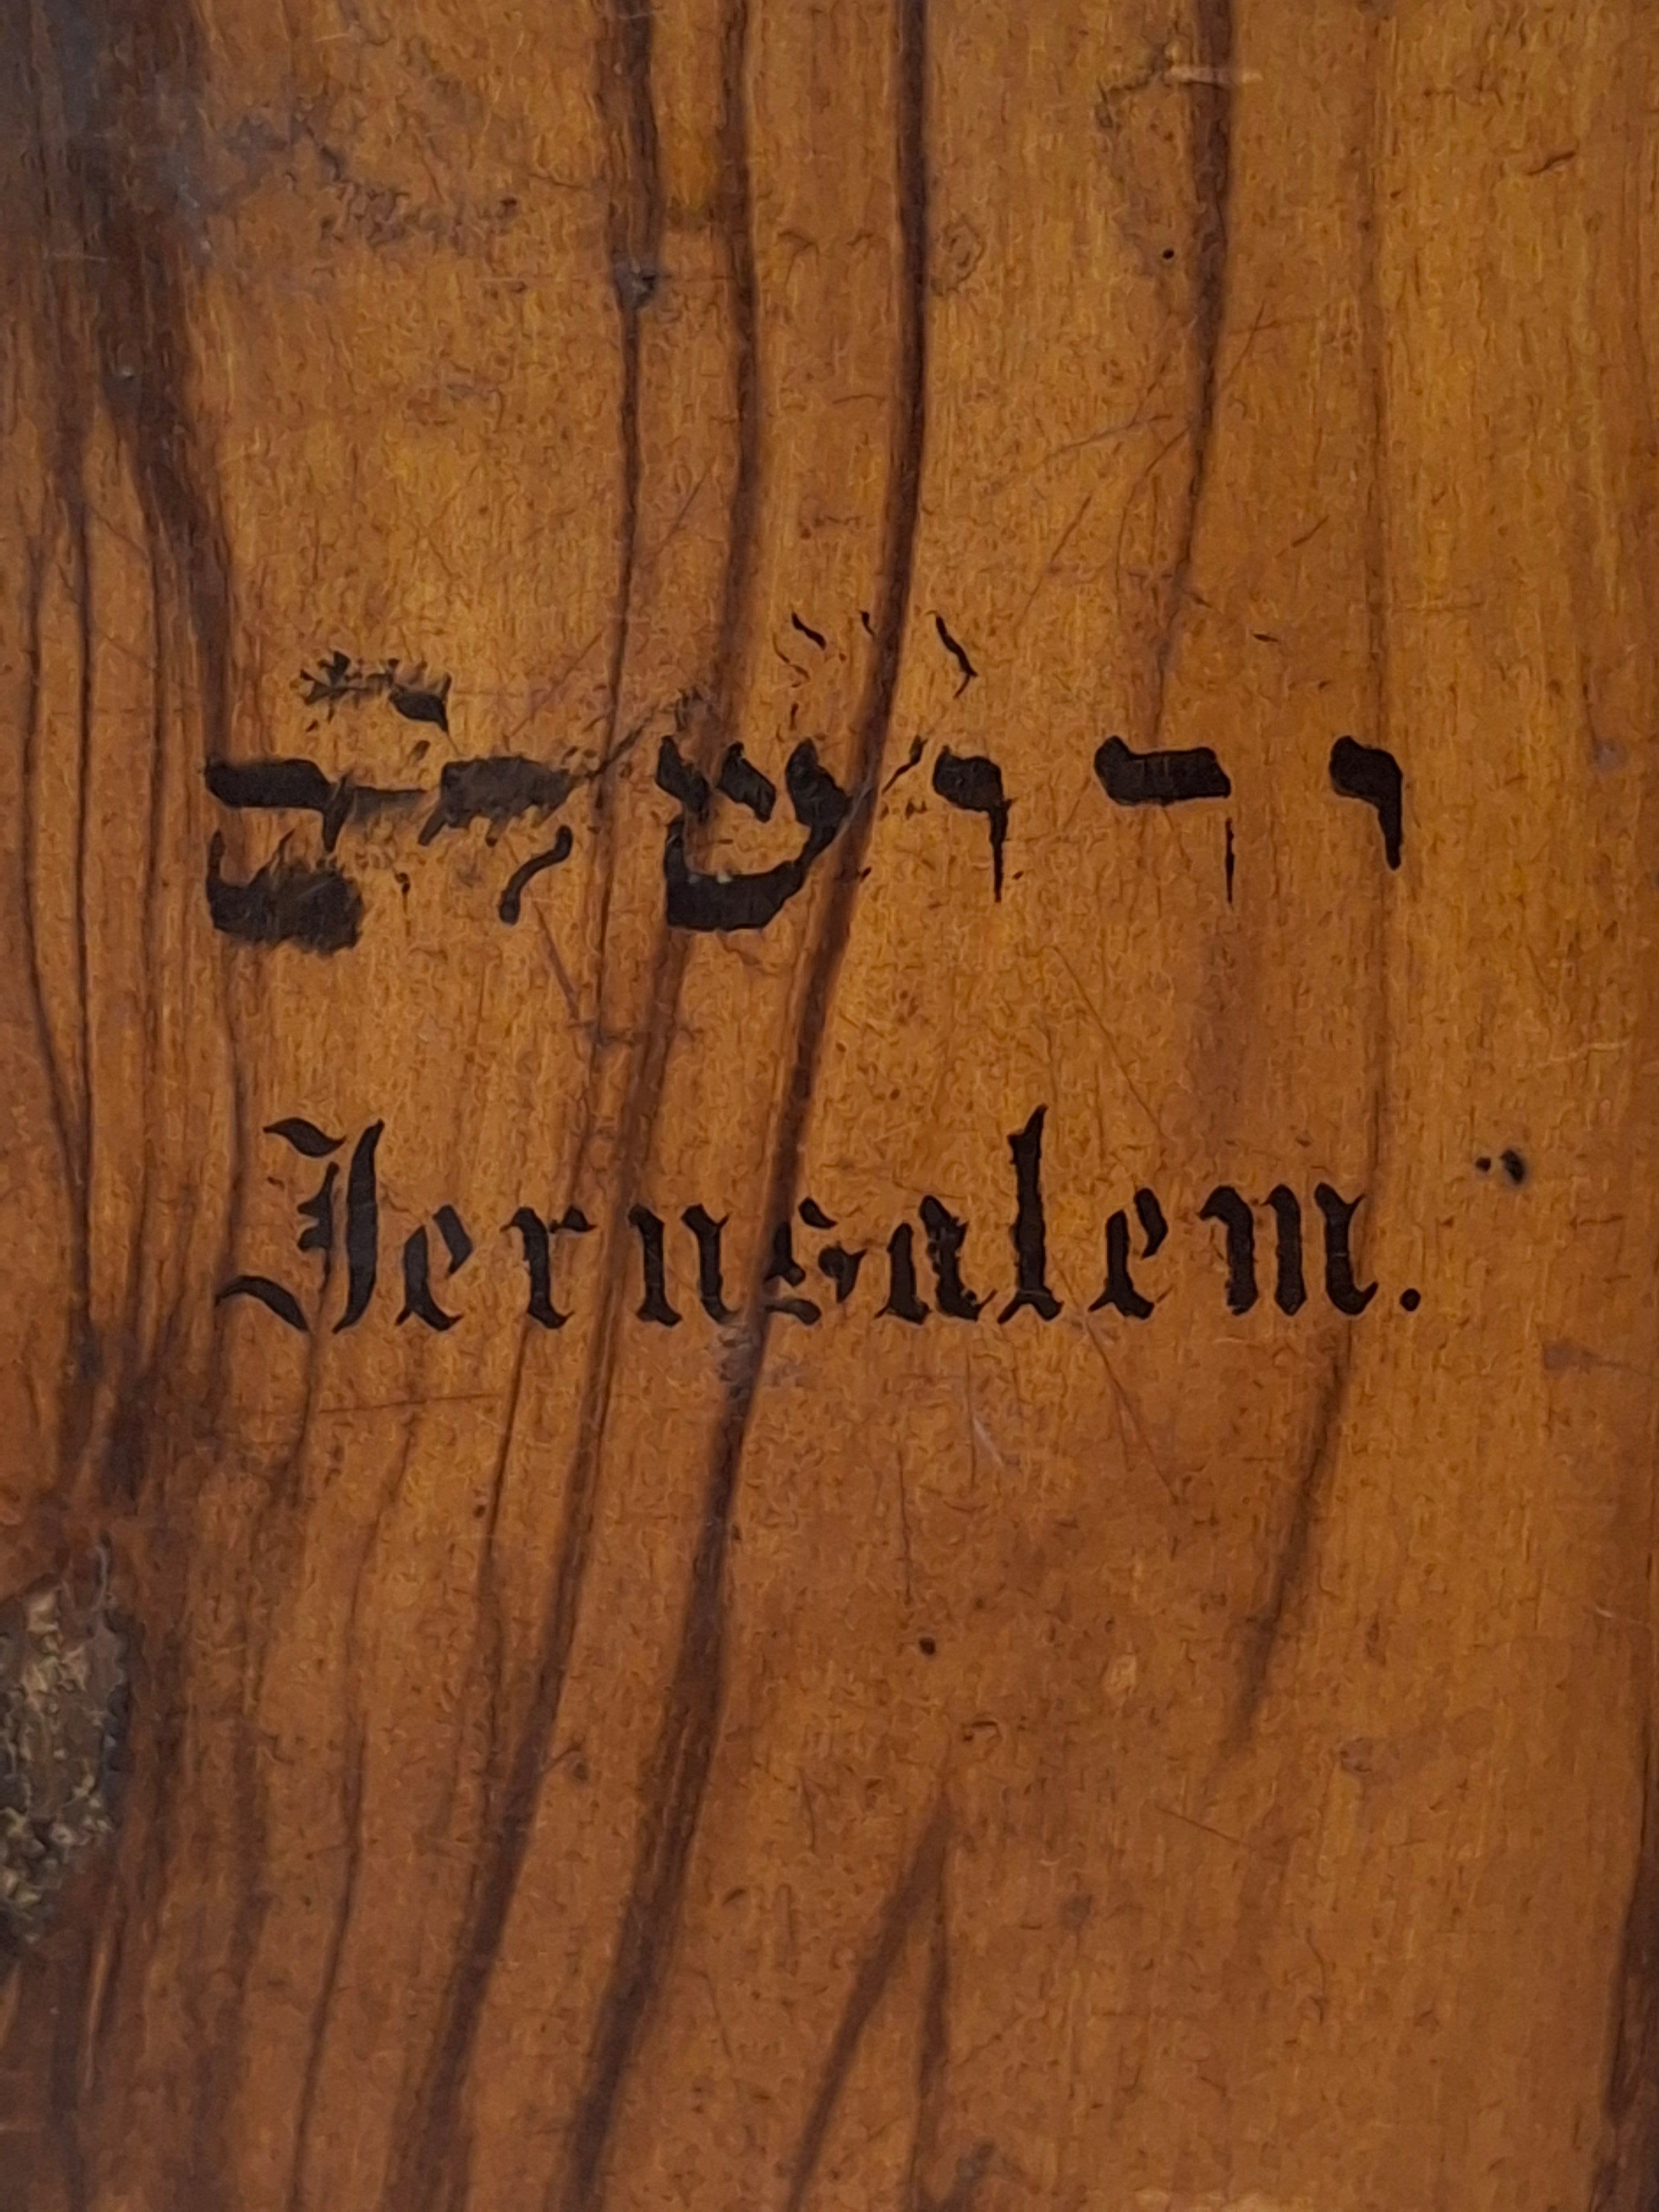 ירושלם
Jerusalem.